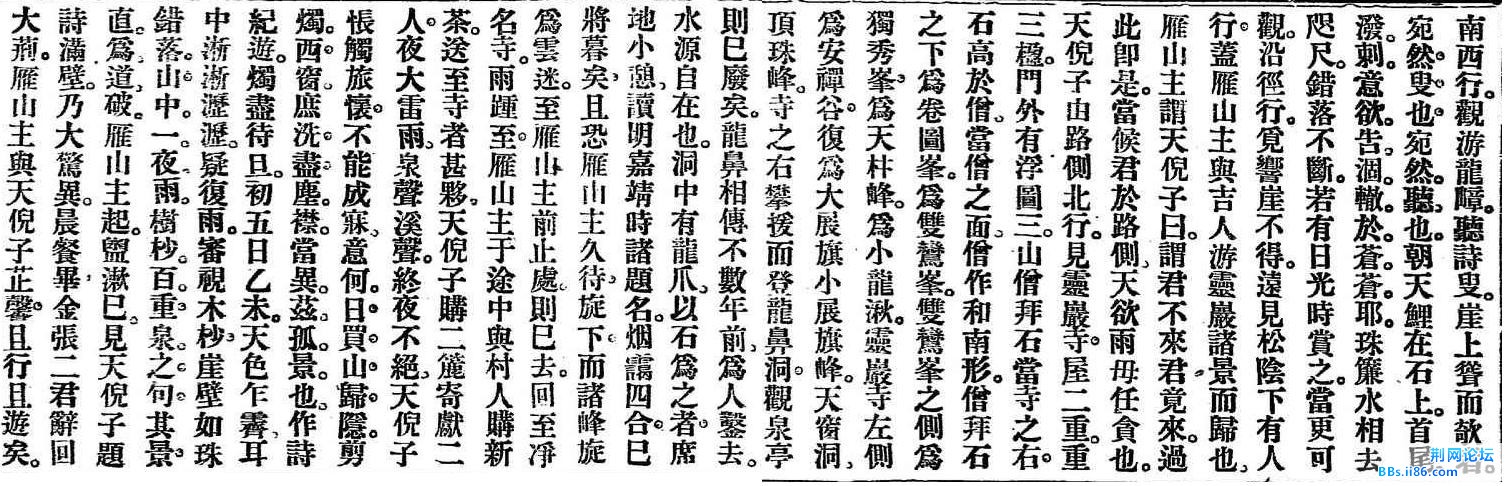 南西行。觀游龍嶂。聽詩叟。崖上聳而欹者。
宛然叟也。宛然聽也。朝天鯉在石上。首尾
潑剌。意欲告涸轍於蒼蒼耶。珠簾水相去
咫尺。錯落不斷。若有日光時賞之。當更可
觀。沿徑行。覓響崖不得。遠見松陰下有人
行。蓋雁山主與吉人游靈巖諸景而歸也。
雁山主謂天倪子曰。謂君不來。君竟來。過
此卽是。當候君於路側。天欲雨。毋任貪也。
天倪子由路側北行。見靈巖寺。屋二重。重
三楹。門外有浮圖三。山僧拜石當寺之右。
石高於僧。當僧之面。僧作和南形。僧拜石
之下爲卷圖峯。爲雙鸞峯。雙鸞峯之側爲
獨秀峯。爲天柱峰。爲小龍湫。靈巖寺左側
爲安禪谷。復爲大展旗小展旗峰。天窗洞、
頂珠峰。寺之右攀援而登龍鼻洞。觀泉亭
則已廢矣。龍鼻相傳不數年前、爲人鑿去。
水源自在也。洞中有龍爪。以石爲之者。席
地小憩。讀明嘉靖時諸題名。烟靄四合。已
將暮矣。且恐雁山主久待。旋下。而諸峰旋
爲雲迷。至雁山主前止處。則已去。回至凈
名寺。雨踵至。雁山主于途中與村人購新
茶。送至寺者甚夥。天倪子購二簏寄獻二
人。夜大雷雨。泉聲溪聲。終夜不絕。天倪子
悵觸旅懷。不能成寐。意何日買山歸隱。剪
燭西窗。庶洗盡塵襟。當異茲孤景也。作詩
紀遊。燭盡待旦。初五日乙未。天色乍霽。耳
中漸漸瀝瀝。疑復雨。審視木杪、崖壁如珠
錯落。山中一夜雨。樹杪百重泉之句。其景
直爲道破。雁山主起。盥漱已。見天倪子題
詩滿壁。乃大驚異。晨餐畢、金張二君辭回
大荊。雁山主與天倪子芷馨。且行且遊矣。
荆网论坛
BBs.ii86.com